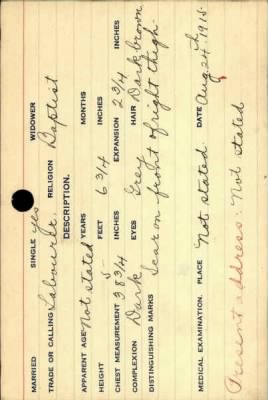 MARRIED SINGLE yes WIDOWER
TRADE OR CALLING Labourer. RELIGION Baptist
DESCRIPTION.
APPARENT AGE Not stated YEARS MONTHS
HEIGHT 5 FEET 6 3/4 INCHES
CHEST MEASUREMENT 38 3/4 INCHES EXPANSION 2 3/4 INCHES
COMPLEXION Dark EYES Grey HAIR Dark brown
DISTINGUISHING MARKS Scar on front of right thigh
MEDICAL EXAMINATION. PLACE Not stated DATE Aug. 24th 1915.
Present address: Not stated